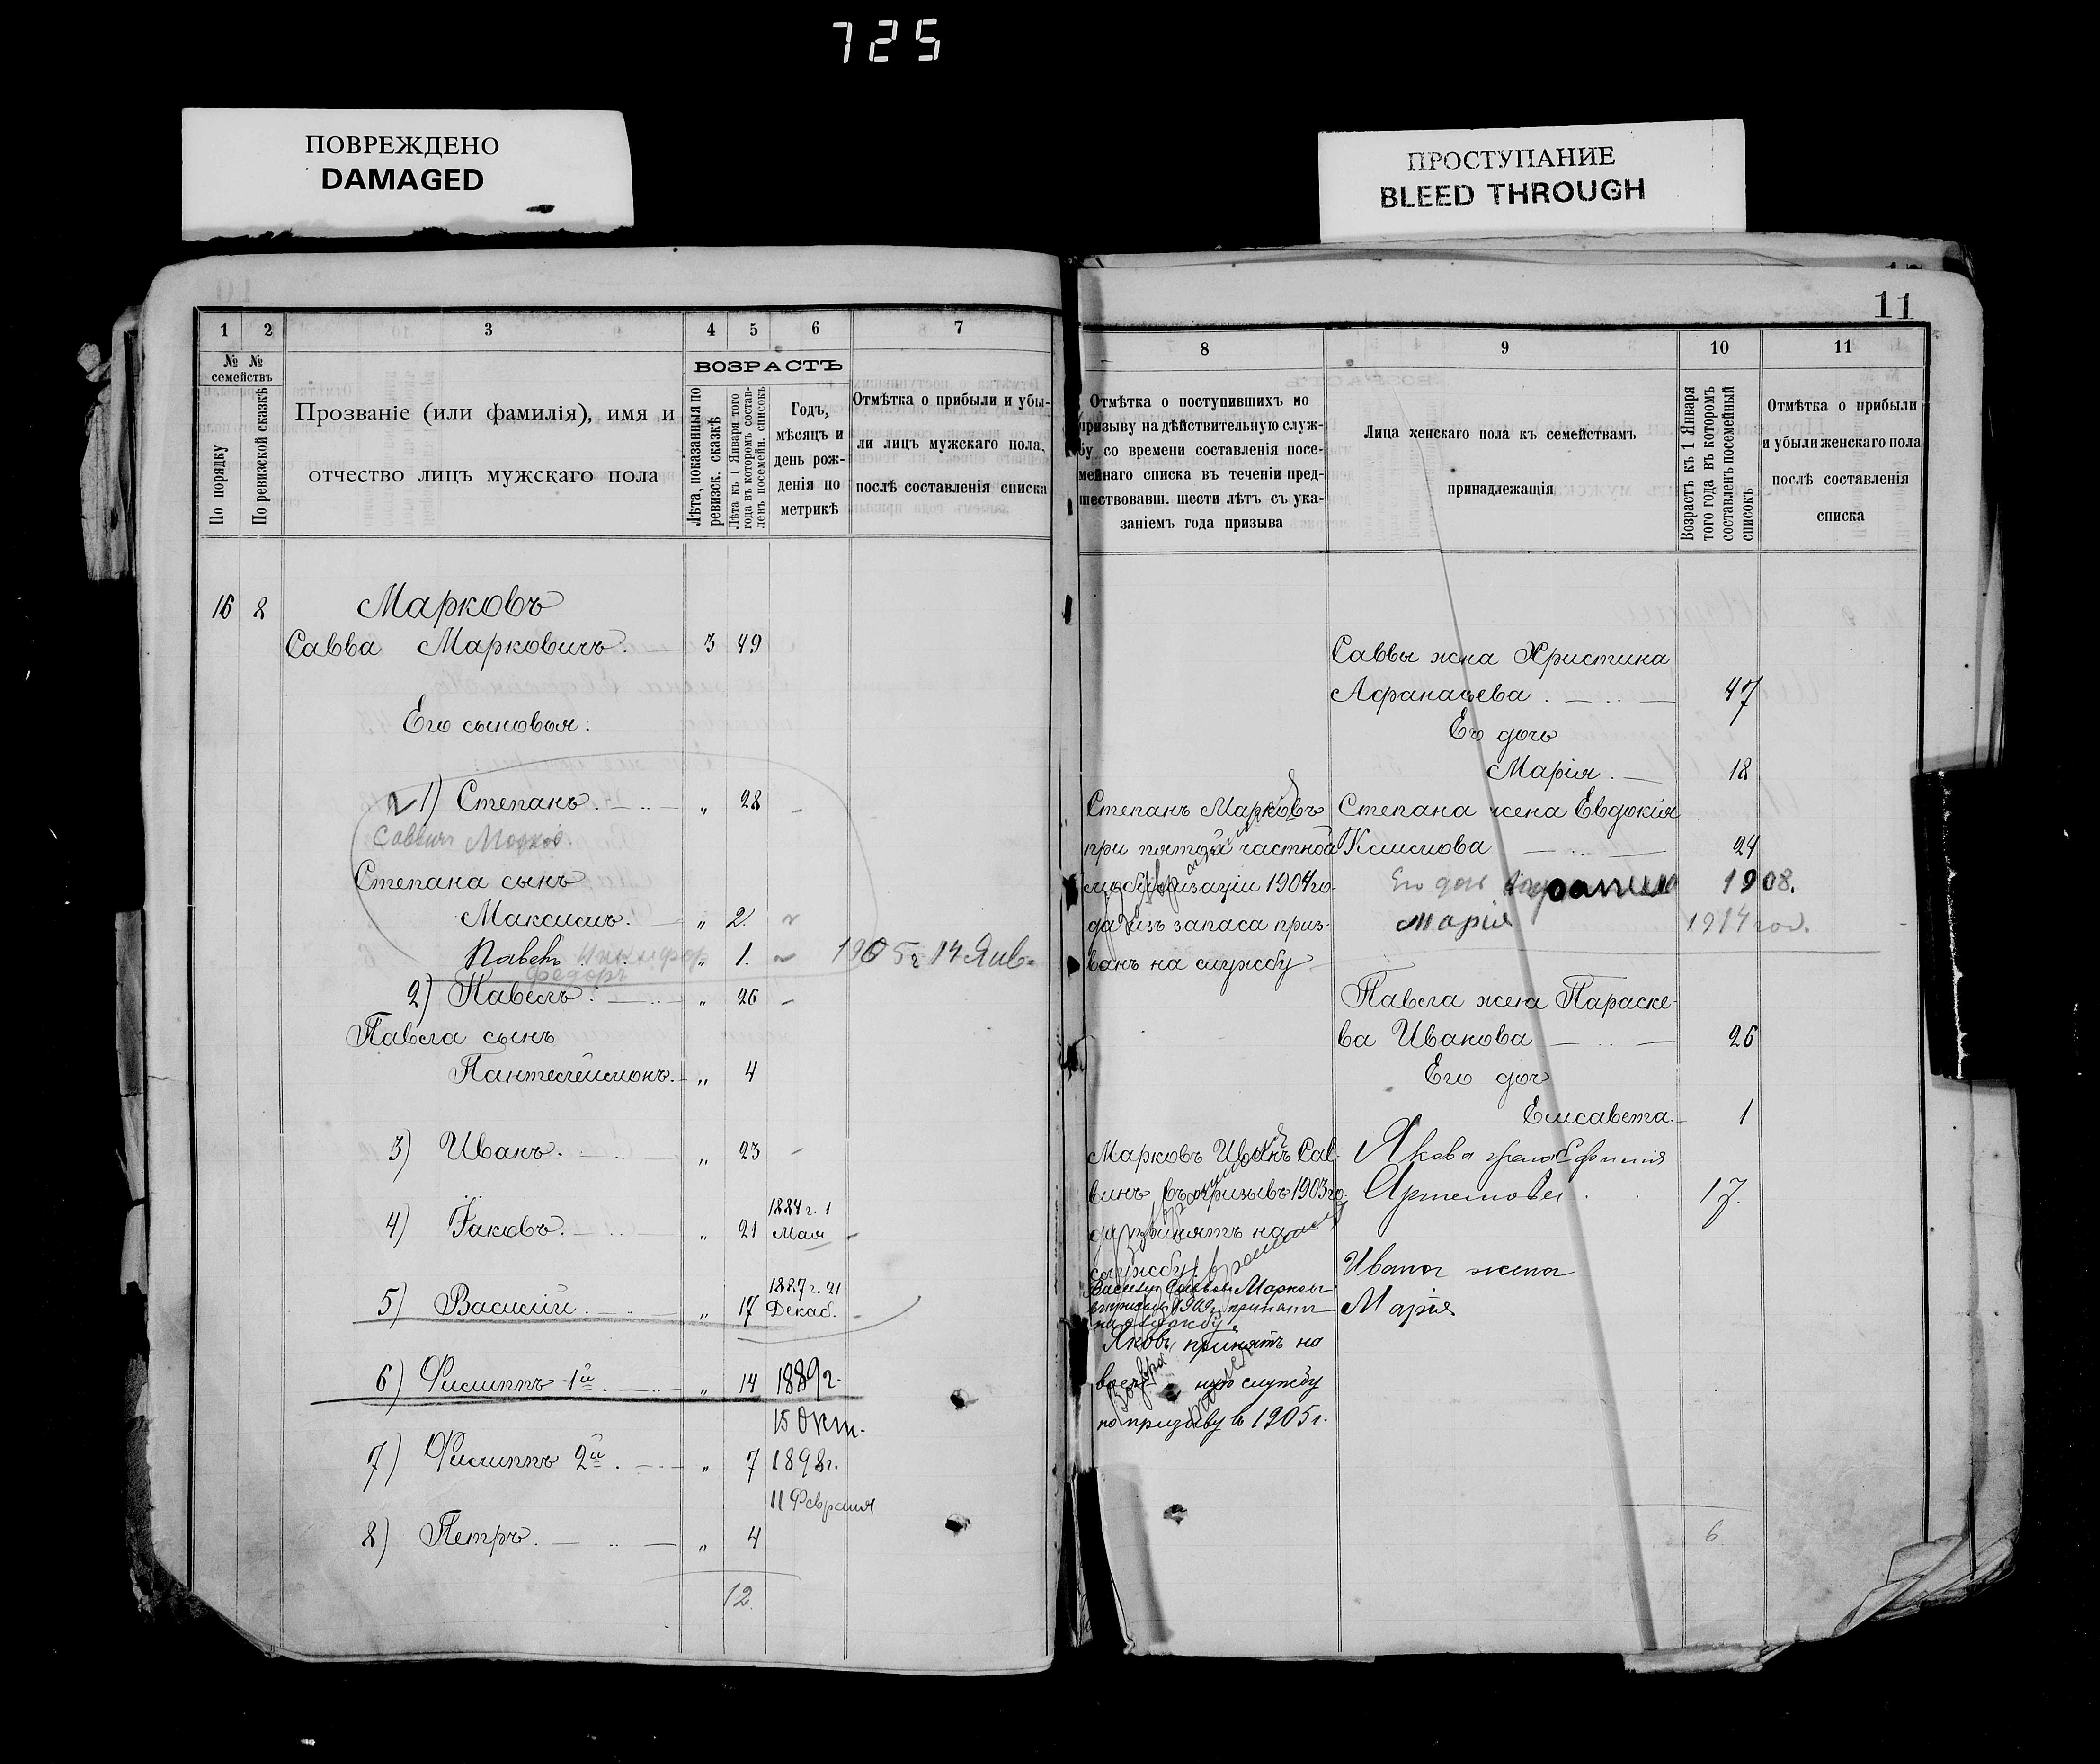 725
ПОВРЕЖДЕНО
DAMAGED
ПРОСТУПАНИЕ
BLEED THROUGH
11
1 2 3 4 5 6 7
№ № семействъ
По порядку
По ревизской сказкѣ
Прозваніе (или фамилія), имя и
отчество лицъ мужскаго пола
ВОЗРАСТЪ
Лѣта, показанныя по
ревизск. сказкѣ
Лѣта къ 1 Января того
года въ которомъ состав-
ленъ посемейн. списокъ
Годъ,
мѣсяцъ и
день рож-
денія по
метрикѣ
Отмѣтка о прибыли и убы-
ли лицъ мужскаго пола,
послѣ составленія списка
16 8 Марковъ
Савва Марковичъ. 3 49
Его сыновья:
1) Степанъ. „ 28
Степана сынъ
Максимъ. „ 2.
Павелъ „ 1. 1905 г 14 Янв.
Федоръ
2) Павелъ. „ 26
Павла сынъ
Пантелеймонъ. „ 4
3) Иванъ. „ 23
1884 г. 1
4) Іаковъ. „ 21 Мая
1887 г. 21
5) Василій. „ 17 Декаб.
6) Филиппъ 1й. „ 14 1889 г.
15 Окт.
7) Филиппъ 2й. „ 7 1898 г.
11 Февраля
8) Петръ. „ 4
12
8 9 10 11
Отмѣтка о поступившихъ по
призыву на дѣйствительную служ-
бу со времени составленія посе-
мейнаго списка въ теченіи пред-
шествовавш. шести лѣтъ съ ука-
заніемъ года призыва
Лица женскаго пола къ семействамъ
принадлежащія
Возрастъ къ 1 Января
того года въ которомъ
составленъ посемейный
списокъ
Отмѣтка о прибыли
и убыли женскаго пола
послѣ составленія
списка
Саввы жена Христина
Афанасьева. 47
Его дочь
Марія. 18
Степанъ Марковъ
при пятой частной
мобилизаціи 1904 го-
да изъ запаса приз-
ванъ на службу
Степана жена Евдокія
24
Его дочь 1908.
Марія 1914 год.
Павла жена Параске-
ва Иванова 26
Его дочь
Елисавета. 1
Марковъ Иванъ Сав-
винъ въ призывъ 1903 го-
да принятъ на
службу
Якова жена
Артемова. 17.
Ивана жена
Марія
Василій Саввинъ Марковъ
на службу.
Яковъ принятъ на
ную службу
по призыву въ 1905 г.
6.